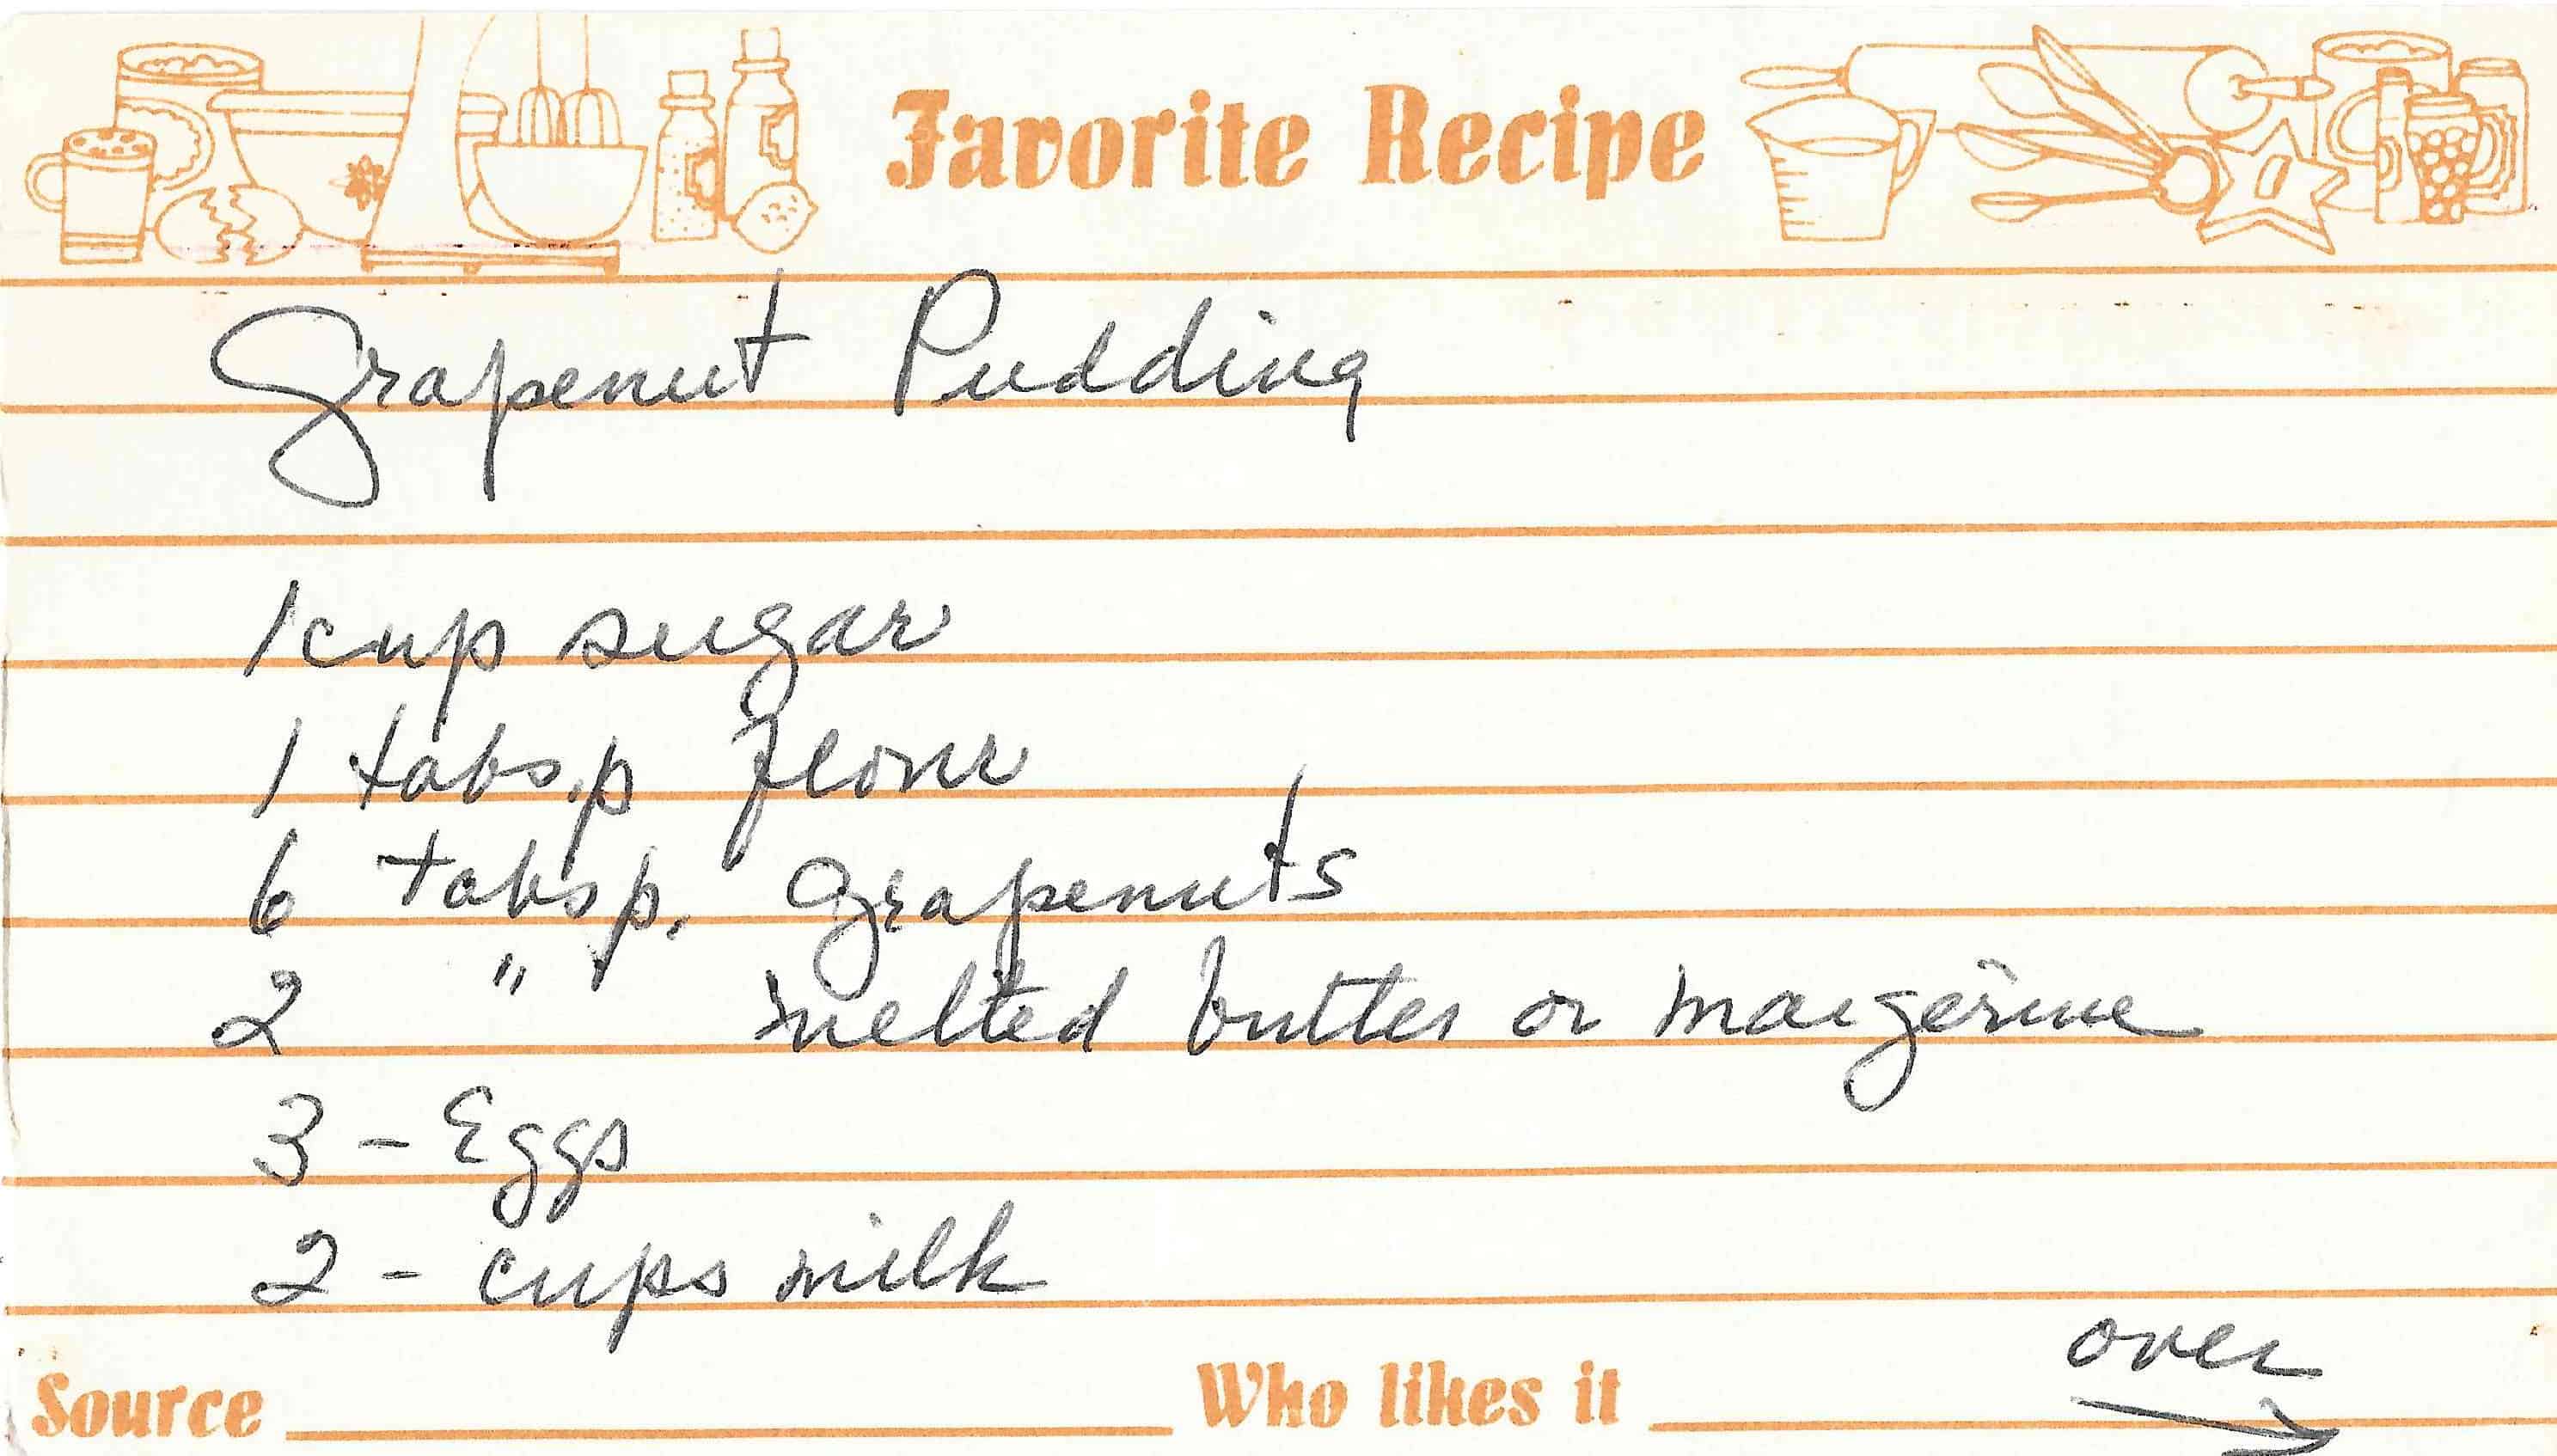 Favorite Recipe
Grapenut Pudding
1 cup sugar
1 tabsp flour
6 tabsp. Grapenuts
2 " melted butter or margerine
3 - Eggs
2 - cups milk
over
Source
Who likes it